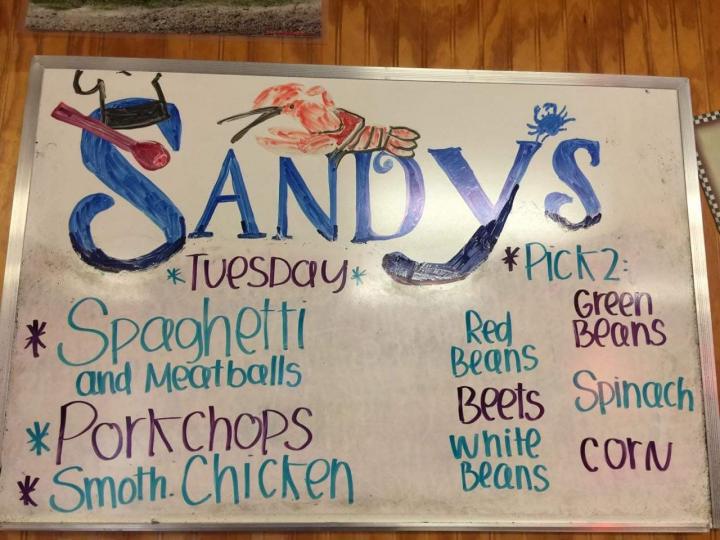 SANDYS
*TUESDAY*
* Spaghetti
and Meatballs
* Porkchops
* Smoth. Chicken
* Pick 2:
Red
Beans
Beets
white
Beans
Green
Beans
Spinach
corn